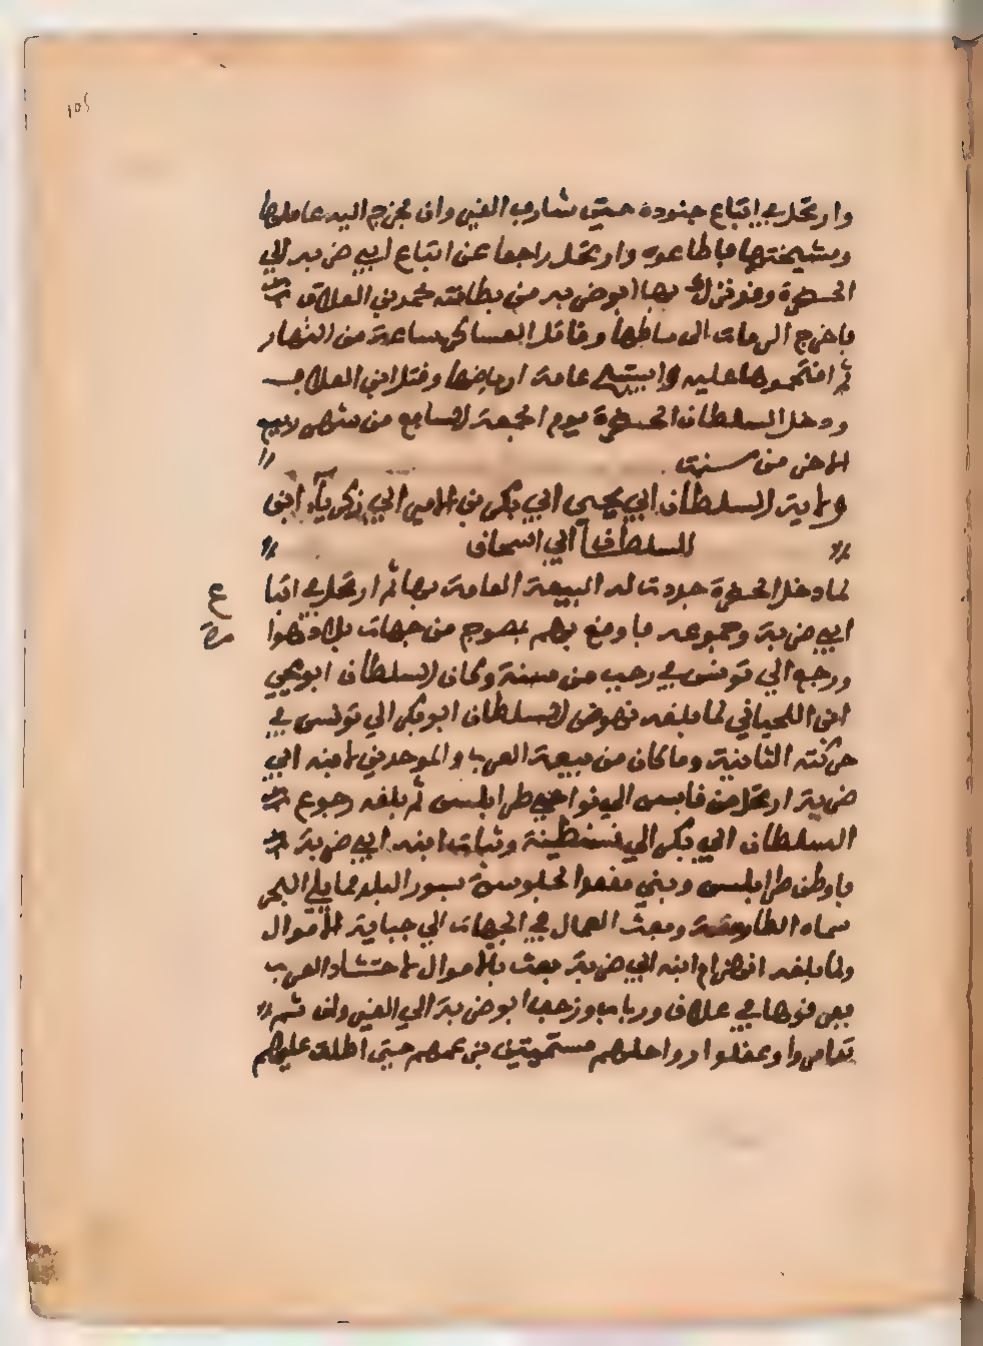 ١٠٥
وارتحل في اتباع جنوده حتى شارف القيروان فخرج اليه عاملها
ومشيختها فاطاعوه وارتحل راجعا عن اتباع ابي ضربة الي
الحضرة وقد نزل بها ابو ضربة من بطانته محمد بن الغلاق
فاخرج الرماة الى ساطها وقاتل العساكر ساعة من النهار
ثم اقتحموها عليه واستبيح عامة ارباضها وقتل ابن الغلاق
ودخل السلطان الحضرة يوم الجمعة السابع من شهر ربيع
الاخر من سنة
ولاية السلطان ابي يحيى ابي بكر بن الامير ابي زكرياء ابن
السلطان ابي اسحاق
لما دخل الحضرة جددت له البيعة العامة بها ثم ارتحل في اتبا ع
ابي ضربة وجموعه فاوقع بهم بمصوح من جهات بلاد هوا رة
ورجع الي تونس في رجب من سنة وكان السلطان ابو يحيي
ابن اللحياني لما بلغه نهوض السلطان ابو بكر الي تونس في
حركته الثانية وما كان من بيعة العرب والموحدين لابنه ابي
ضربة ارتحل من قابس الي نواحي طرابلس ثم بلغه رجوع
السلطان ابي بكر الي قسنطينة وثبات ابنه ابي ضربة
فاوطن طرابلس وبنى مقعدا لجلوسه بسور البلد مما يلي البحر
سماه الطارمة وبعث العمال في الجهات الي جباية الاموال
ولما بلغه انهزام ابنه ابي ضربة بعث بالاموال لاحتشاد العرب
ففرقوها في علاق ودباب وزحف ابو ضربة الي القيروان ثم
تعامروا وعقلوا رواحلهم مستميتين بزعمهم حتى اطلت عليهم